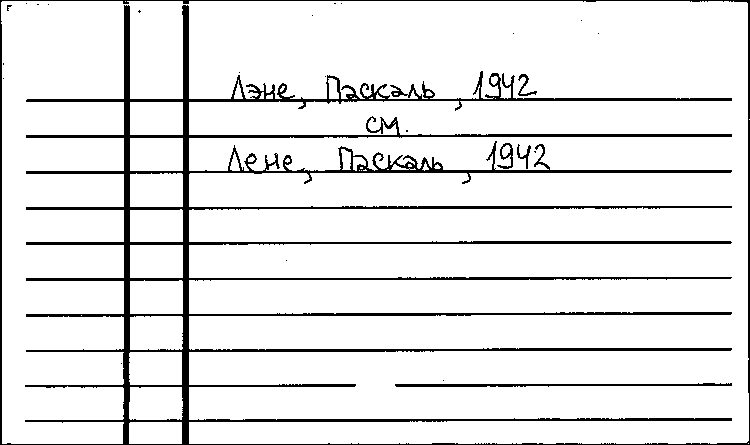 Лэне, Паскаль, 1942
см.
Лене, Паскаль, 1942